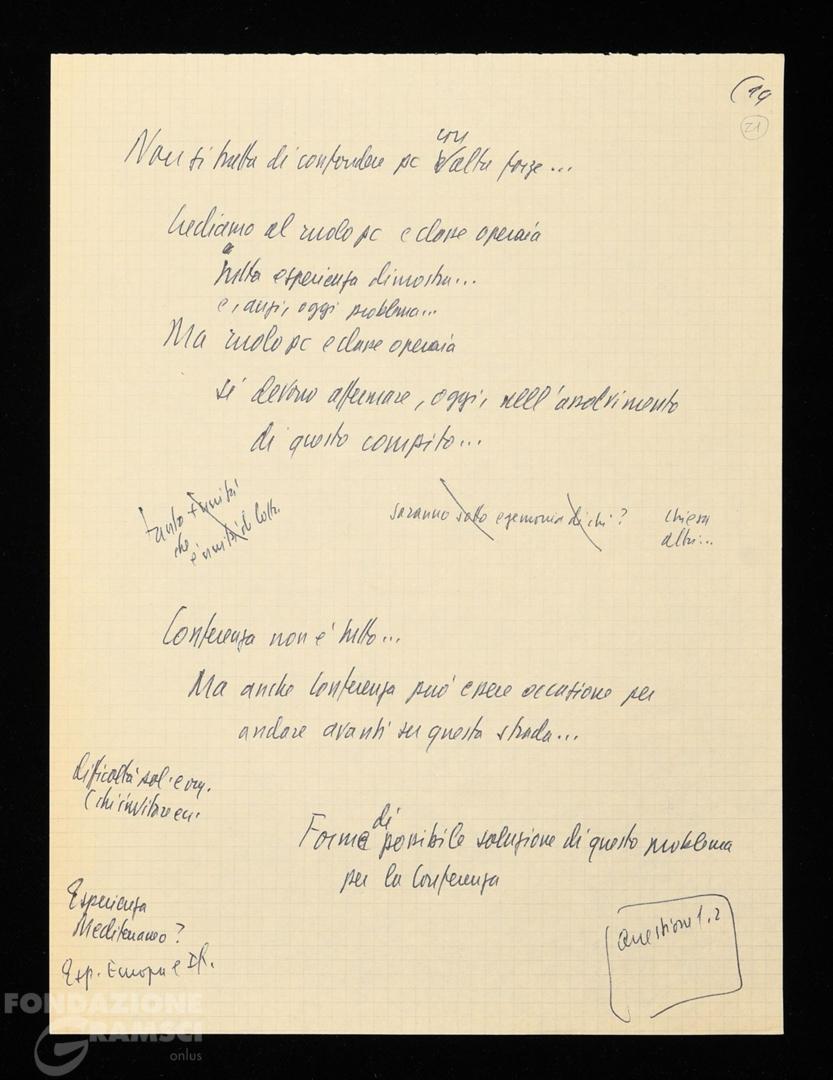 (19
21
Non si tratta di confondere pc con altre forze...
Crediamo al ruolo pc e classe operaia
tutta esperienza dimostra...
e, anzi, oggi problema...
Ma ruolo pc e classe operaia
si devono affermare, oggi, nell'assolvimento
di questo compito...
tanto + unità
che
è unità di lotta
saranno sotto egemonia di chi?
chiesa
altri...
Conferenza non è tutto...
Ma anche Conferenza può essere occasione per
andare avanti su questa strada...
difficoltà
chi invitare ecc.
Forme di possibile soluzione di questo problema
per la Conferenza
Esperienza
Mediterraneo?
Esp. Europa e
Questione 1.2
FONDAZIONE
GRAMSCI
onlus